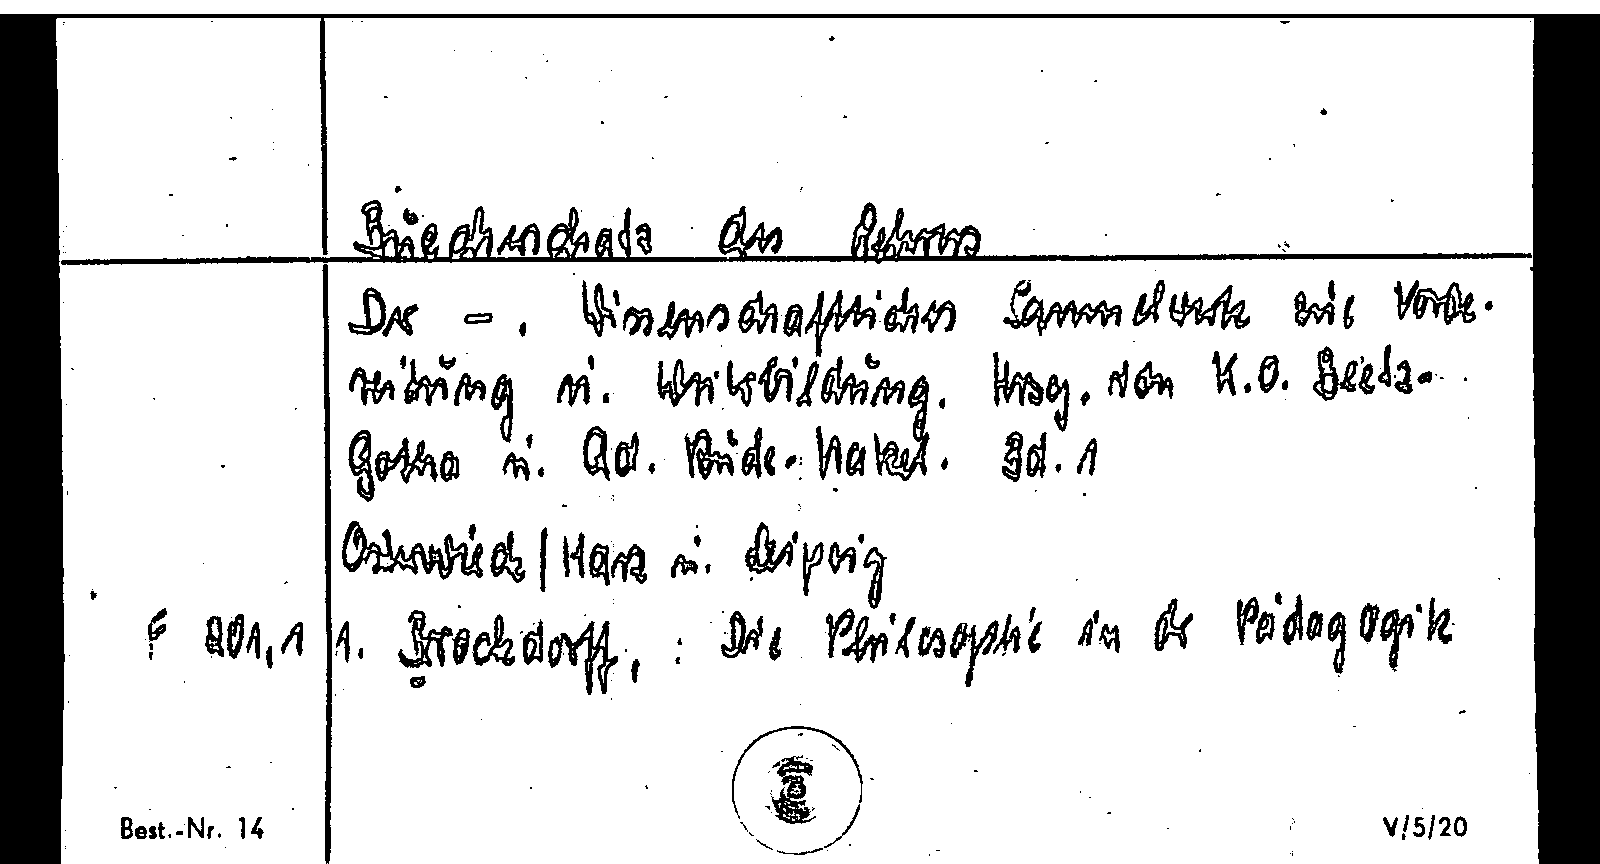 Bücherschatz des Lehrers
Der -. Wissenschaftliches Sammelwerk zur Vorbe-
reitung u. Weiterbildung. Hrsg. von K.O. Beetz-
Gotha u. Ad. Rüde-Nakel. Bd. 1
Osterwieck/Harz u. Leipzig
F 201,1 1. Brockdorff, : Die Philosophie in der Pädagogik
Best.-Nr. 14 V/5/20